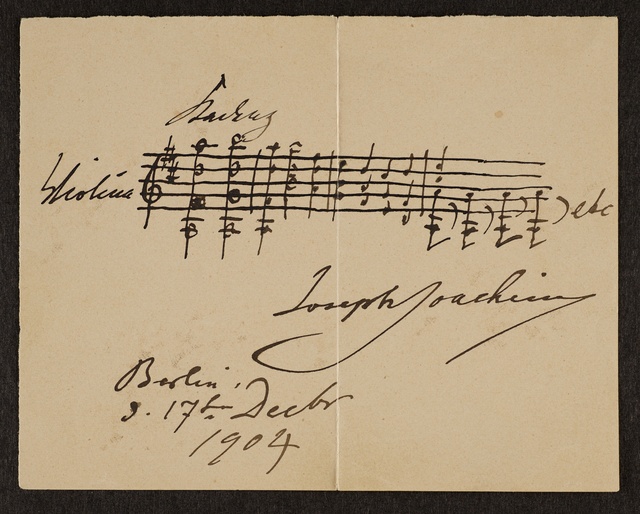 Kadenz
Violina
etc
Joseph Joachim
Berlin,
d. 17ten Decbr
1904